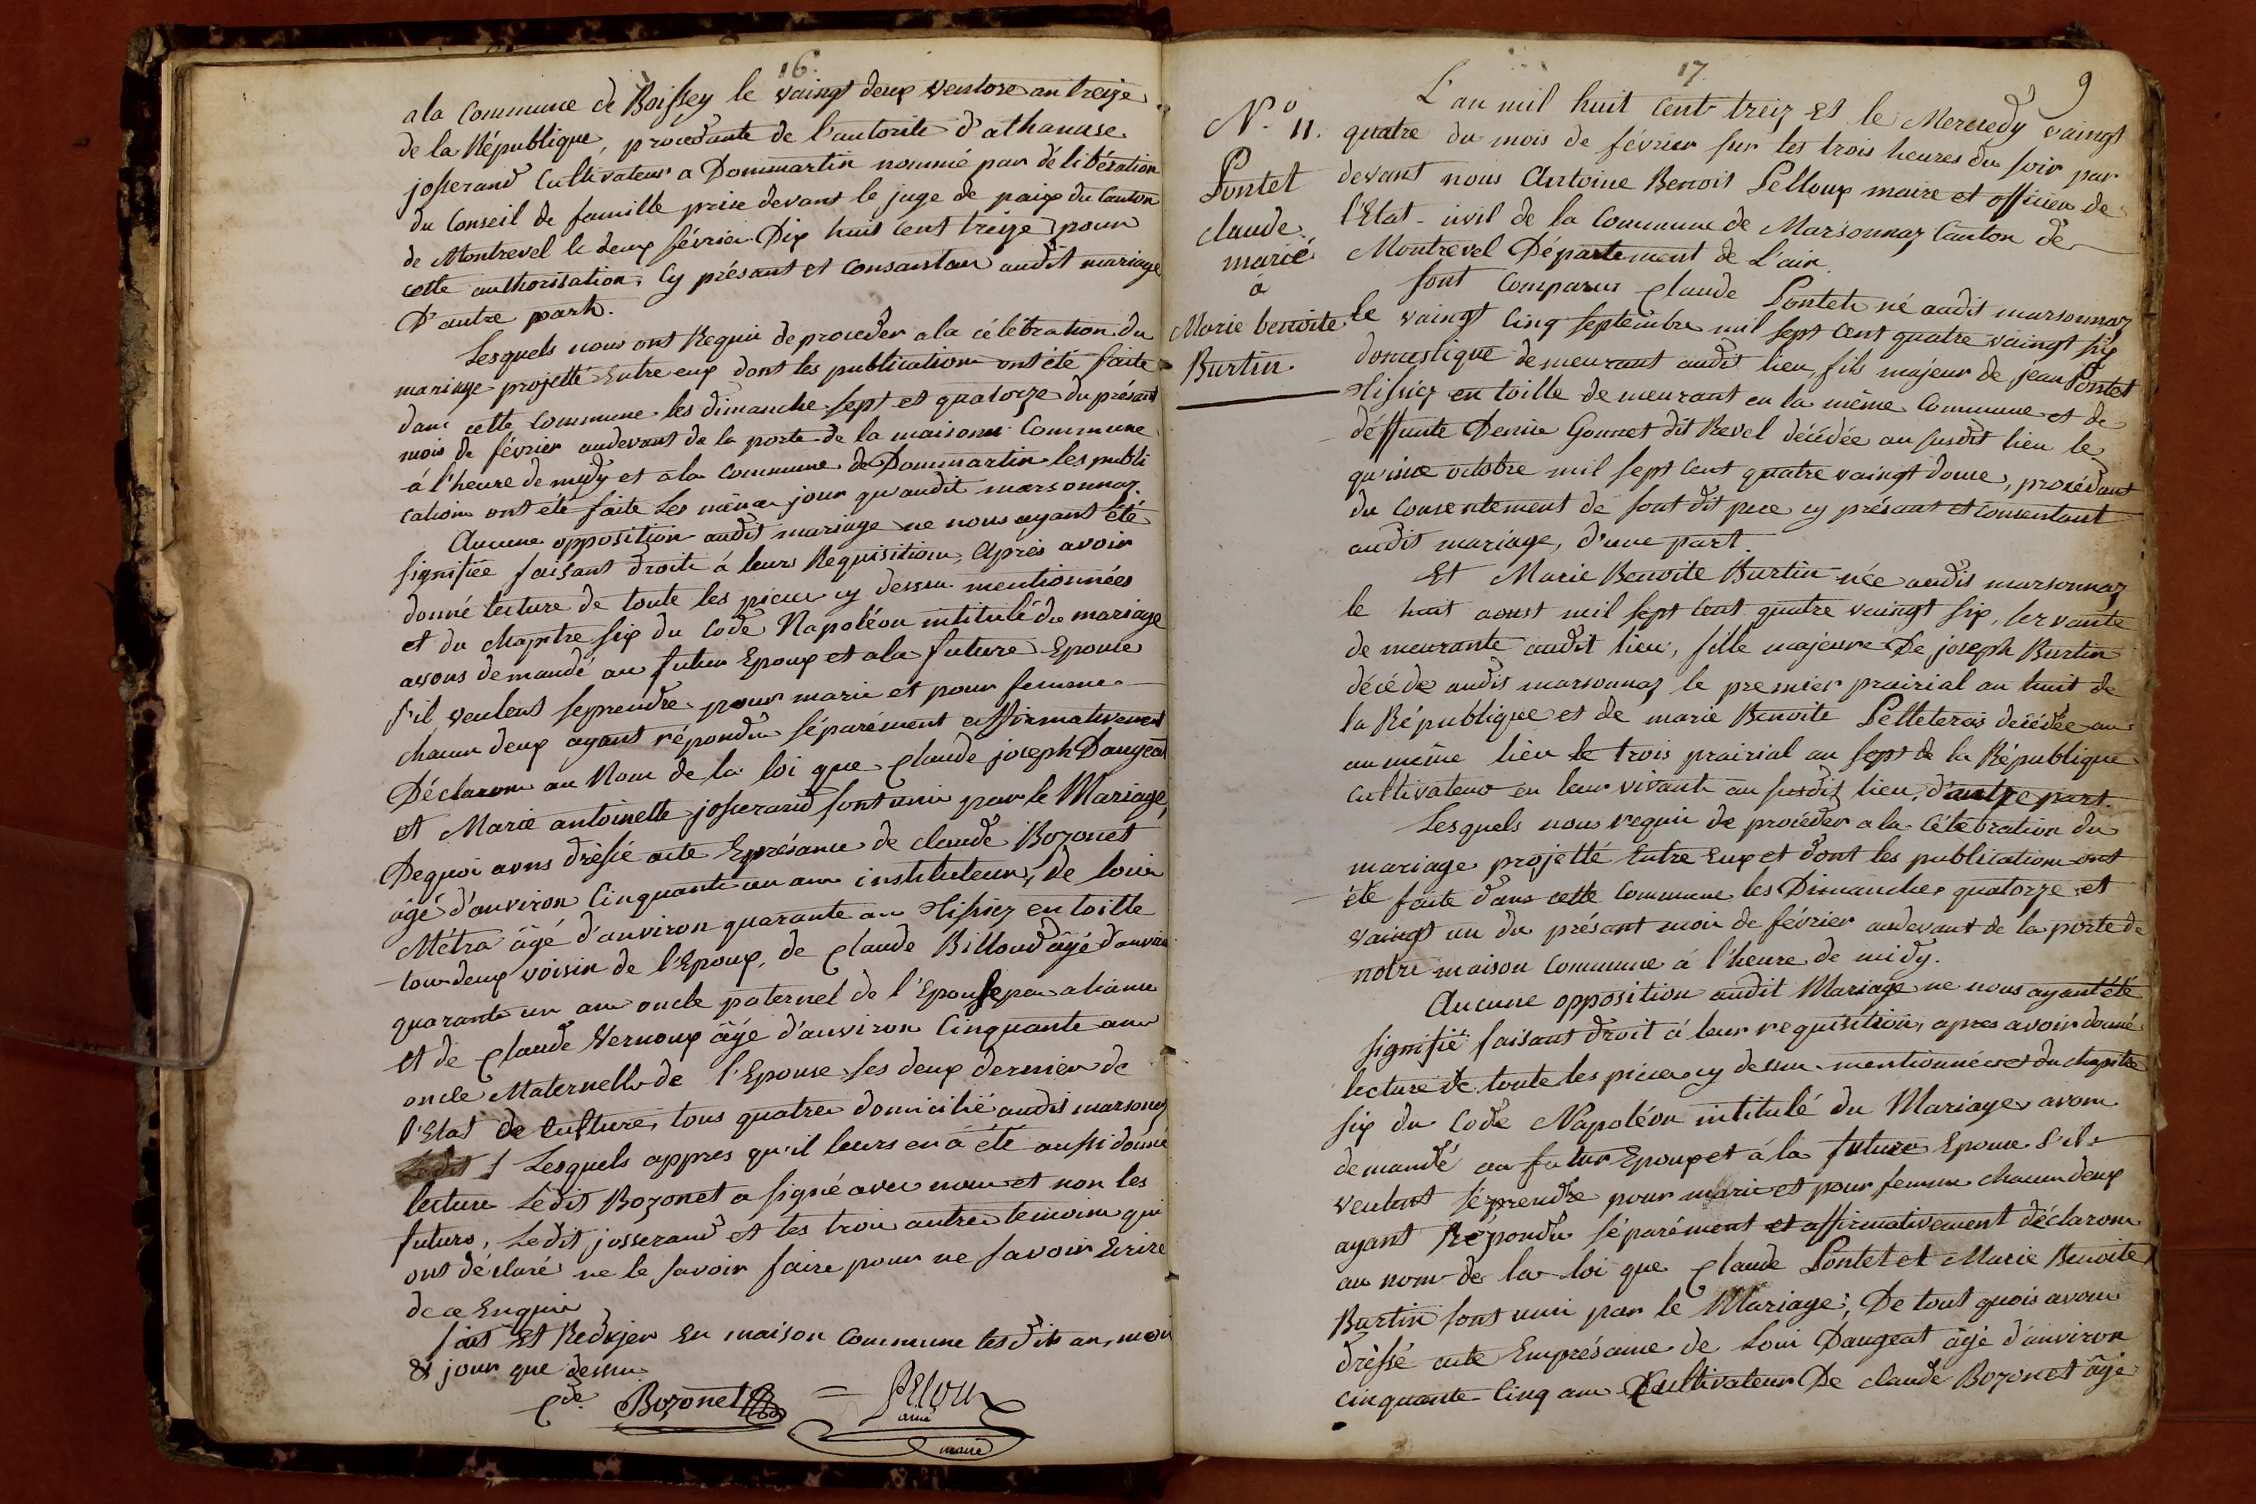 16.
a la Commune de Boissey le vaingt deux ventose an treize
de la République, procedante de l'autorité d'athanase
josserand Cultivateur a Dommartin nommé par délibération
du Conseil de famille prise devant le juge de paix du Canton
de Montrevel le deux février Dix huit cent treize pour
cette authorisation, Cy présant et Consantan audit mariage
D'autre part.
Lesquels nous ont Requis de proceder a la célébration du
mariage projetté Entre eux dont les publication ont été faite
dans cette commune les dimanche sept et quatorze du présant
mois de février audevant de la porte de la maison Commune
à l'heure de midy et a la Commune de Dommartin les publi
cation ont été faite Les même jour qu'audit marsonnaz.
Aucune opposition audit mariage ne nous ayant été
signifiée faisant droite à leurs Requisition, Après avoir
donné lecture de toute les piece cy dessu mentionnées
et du chapitre six du Code Napoléon intitulé du mariage
avons demandé au futur Epoux et a la future Epouse
s'il veulent se prendre pour marie et pour femme
chacun deux ayant répondu séparément affirmativement
Déclarons au Nom de la loi que Claude joseph Daugeat
et Marie antoinette josserand sont unis par le Mariage,
De quoi avons dréssé acte En présance de claude Bozonet
âgé d'auviron Cinquante un ans instituteur, de Louis
Métra âgé d'auviron quarante an Tissiez en toille
tous deux voisin de l'Epoux, de Claude Billoud âgé d'auviron
quarante un ans oncle paternel de l'Epouse par aliance
et de Claude Vernoux âgé d'auviron Cinquante ans
oncle Maternelle de l'Epouse les deux dernier de
l'Etat de Culture, tous quatre domicilié audit marsonnaz
Lesquels appres qu'il leurs en à été aussi donné
lecture Ledit Bozonet a signé avec nous et non les
futurs, Ledit josserand et les trois autres temoins qui
ont déclaré ne le savoir faire pour ne savoir Ecrire
de ce Enquis
fait Et Redijer En maison Commune lesdits an, mois
& jour que dessus
Cde. Bozonet = Pelou
ainé
maire
17
9
N.o 11.
Pontet
claude
marié
a
Marie benoite
Burtin
L'an mil huit Cent treiz Et le Mercredy vaingt
quatre du mois de février sur les trois heures du soir par
devant nous Antoine Benoit Pelloux maire et officier de
l'Etat-civil de la Commune de Marsonnaz Canton de
Montrevel Département de L'ain
Sont Comparus Claude Pontet né audit marsonnaz
le vaingt Cinq Septembre mil sept Cent quatre vaingt six
domestique demeurant audit lieu, fils majeur de jean Pontet
Tissiez en toille demeurant en la même Commune et de
déffunte Denise Gonnet dit Revel décédée au susdit lieu le
quinze octobre mil sept Cent quatre vaingt douze, procédant
du Consentement de sont dit pere cy présant et Consentant
audit mariage, d'une part.
Et Marie Benoite Burtin née audit marsonnaz
le huit aoust mil sept Cent quatre vaingt six, servante
demeurante audit lieu, fille majeure De joseph Burtin
décédé audit marsonnaz le premier prairial an huit de
la République et de marie Benoite Pelleteras decédée au
au même lieu le trois prairial an sept de la République
Cultivateur en leur vivant au susdit lieu, d'autre part.
Lesquels nous requis de procéder a la Célébration du
mariage projetté Entre Eux et dont les publication ont
été faite dans cette Commune les Dimanches quatorze et
vaingt un du présant mois de février audevant de la porte de
notre maison Commune à l'heure de midy.
Aucune opposition audit Mariage ne nous ayant été
signifié faisant droit à leur requisition, apres avoir donné
lecture de toute les piece cy dessu mentionnées et du chapitre
six du Code Napoléon intitulé du Mariage avons
demandé au futur Epoux et à la future Epouse S'il
veulent se prendre pour marie et pour femme chacun deux
ayant Répondu séparément et affirmativement déclarons
au nom de la loi que Claude Pontet et Marie Benoite
Burtin sont unis par le Mariage, De tout quois avons
dréssé acte En présance de Louis Daugeat âgé d'auviron
cinquante Cinq ans Cultivateur De claude Bozonet âgé